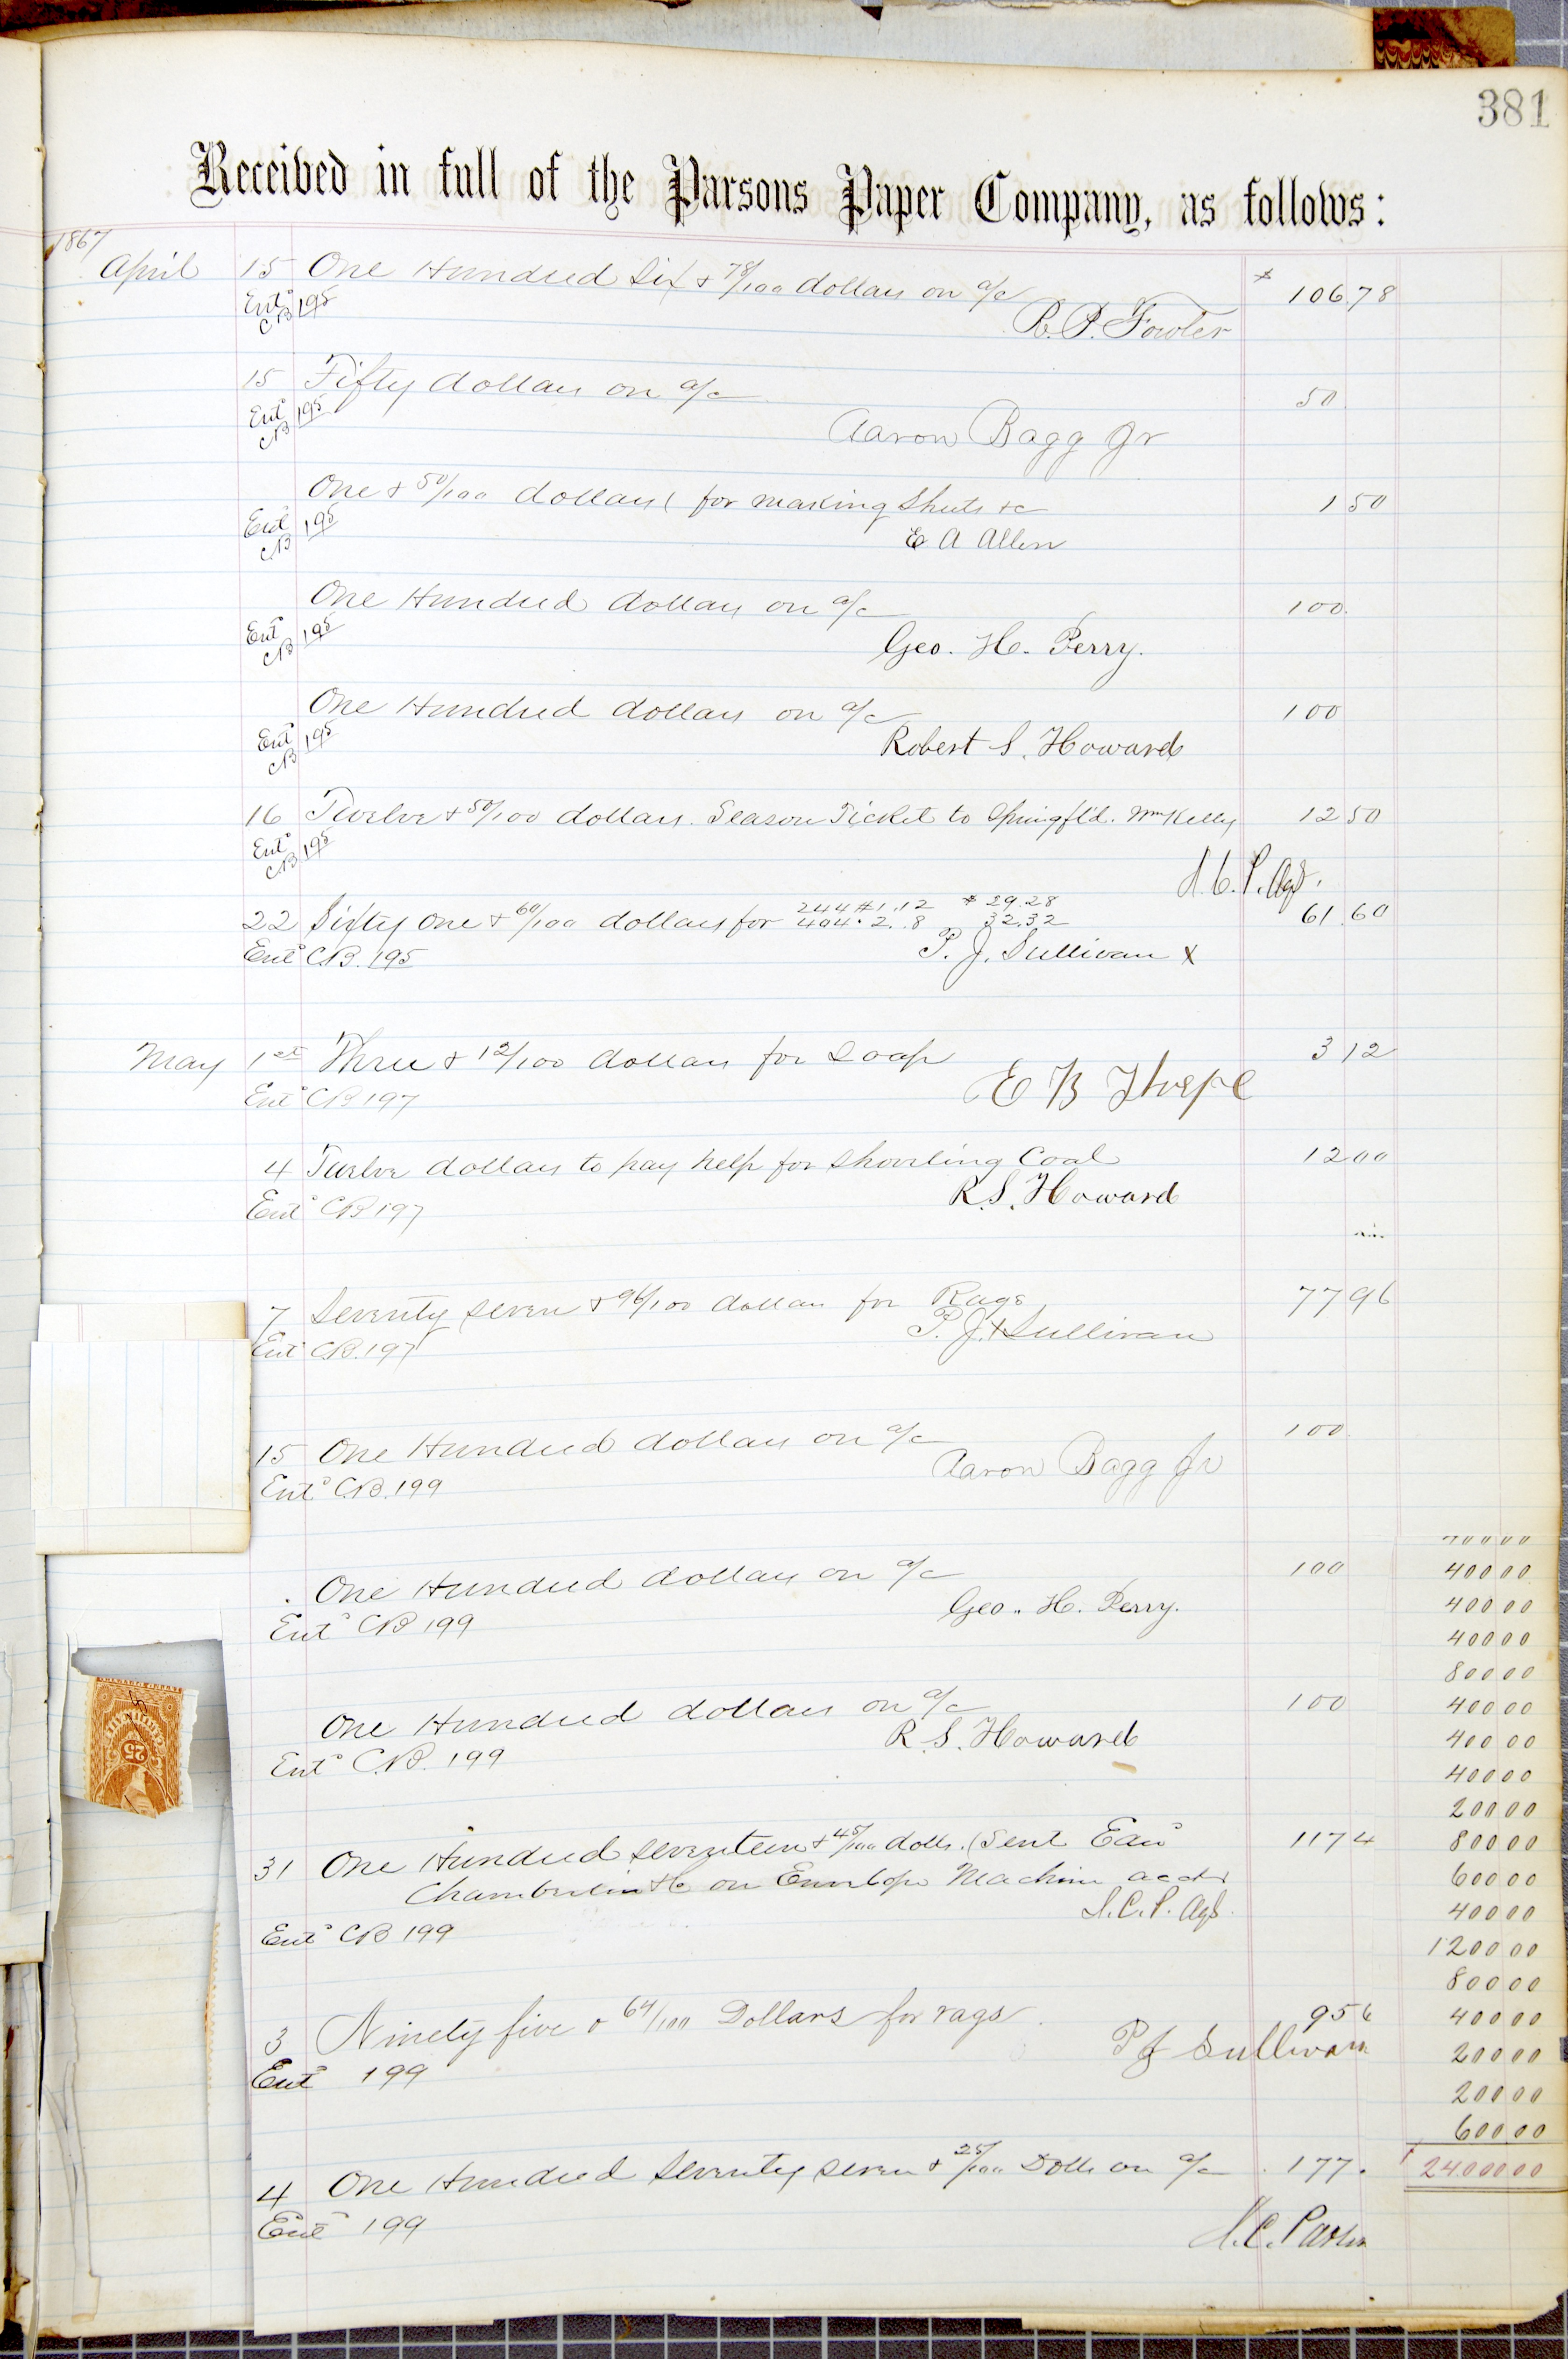 381
Received in full of the Parsons Paper Company, as follows:
1867
April 15 One Hundred Six & 78/100 dollars on a/c $ 106.78
Entd CB 195 R. P. Fowler
15 Fifty dollars on a/c 50
Entd CB 195 Aaron Bagg Jr
One & 50/100 dollars ( for making Sheets &c 1 50
Entd CB 195 E A Allen
One Hundred dollars on a/c 100.
Entd CB 195 Geo. H. Perry.
One Hundred dollars on a/c 100
Entd CB 195 Robert S. Howard
16 Twelve & 50/100 dollars. Season Ticket to Springfld. Wm Kelly 12 50
Entd CB 195 J. C. P. Agt.
22 Sixty One & 60/100 dollars for 244 #1.12 $ 29.28 61.60
404 " 2..8 32.32
Entd CB. 195 P. J. Sullivan X
May 1st Three & 12/100 dollars for Soap 3 12
Entd CB 197 E B Thorpe
4 Twelve dollars to pay help for Shoveling Coal 12 00
Entd CB 197 R. S. Howard
7 Seventy seven & 96/100 dollars for Rags 77 96
Entd CB. 197 P. J. X Sullivan
15 One Hundred dollars on a/c 100
Entd CB. 199 Aaron Bagg Jr
One Hundred dollars on a/c 100
Entd CB 199 Geo. H. Perry.
One Hundred dollars on a/c 100
Entd C.B. 199 R. S. Howard
31 One Hundred seventeen & 45/100 dolls. (Sent
117 4
Chamberlin & Co on Envelope Machine acct)
J. C. P. Agt.
Entd CB 199
3 Ninety five & 64/100 Dollars for rags 95 6
P J Sullivan
Entd 199
4 One Hundred Seventy seven & 25/100 Dolls on a/c 177.
Entd 199 J. C. Parson
400 00
400 00
400 00
800 00
400 00
400 00
400 00
200 00
800 00
600 00
400 00
1200 00
800 00
400 00
200 00
200 00
600 00
24000 00
25